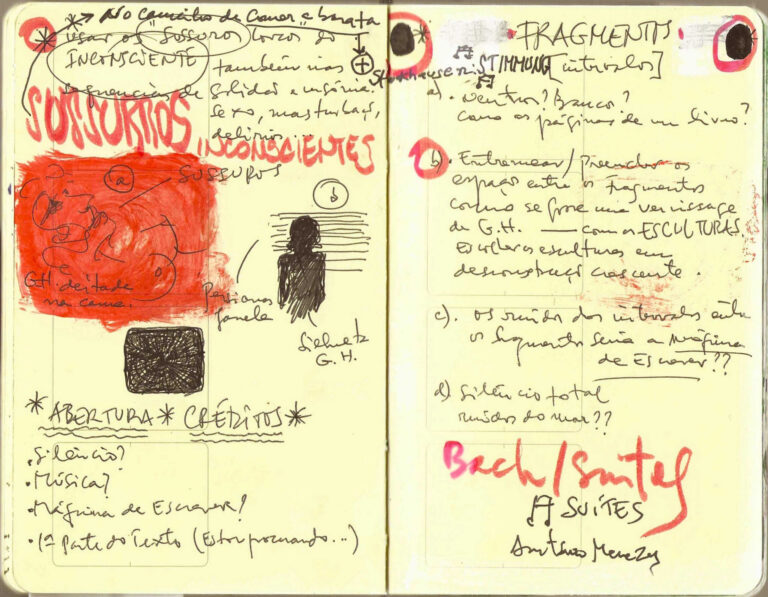 * → No caminho de comer a barata
* usar os SUSSUROS loucos do
INCONSCIENTE
também nas
sequências de solidão e insônia.
sexo, masturbaç,
delírios...
SUSSURROS
INCONSCIENTES
SUSSUROS
a
G.H. deitada
na cama.
b
persianas
janela
Silhueta
G.H.
*ABERTURA * CRÉDITOS*
• Silêncio?
• Música?
• Máquina de Escrever?
• 1ª Parte do Texto (Estou procurando...)
* • FRAGMENTOS
Stockhausen
STIMMUNG [intervalos]
a) • Neutros? Branco?
como as páginas de um livro?
b) • Entremear / Preencher os
espaço entre os fragmentos
como se fosse uma vernissage
de G.H. — com as ESCULTURAS
Escolher as esculturas em
desconstruçã crescente.
c) • Os ruídos dos intervalos entre
os fragmentos seria a Máquina
de Escrever??
d) Silêncio total
ruídos do mar??
Bach/Suites
SUÍTES
Antônio Menezes